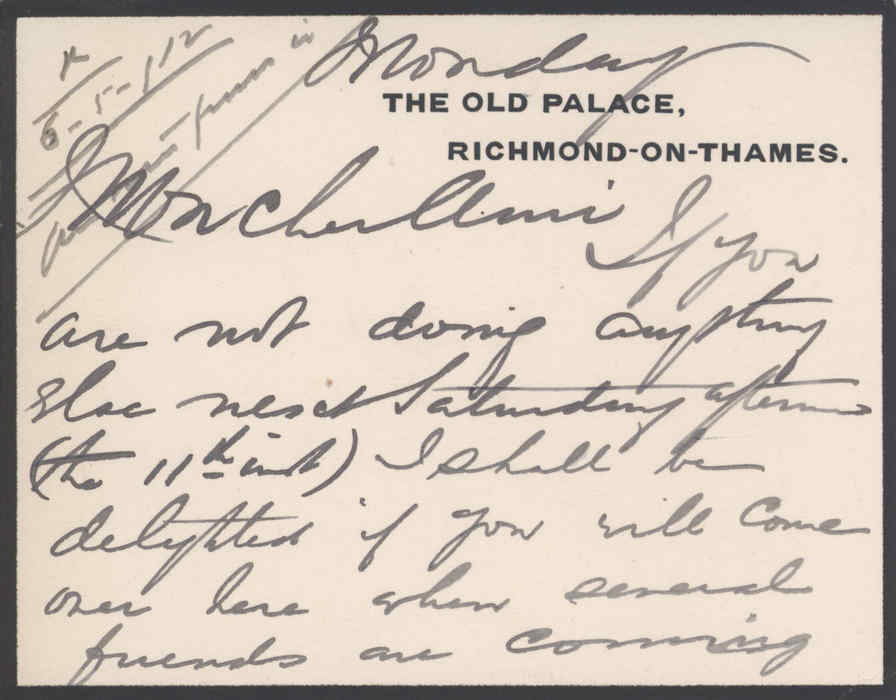 Monday
THE OLD PALACE,
RICHMOND-ON-THAMES.
6-5-12
Mon cher Ami
If you
are not doing anything
else next Saturday afternoon
(the 11th inst) I shall be
delighted if you will come
over here when several
friends are coming